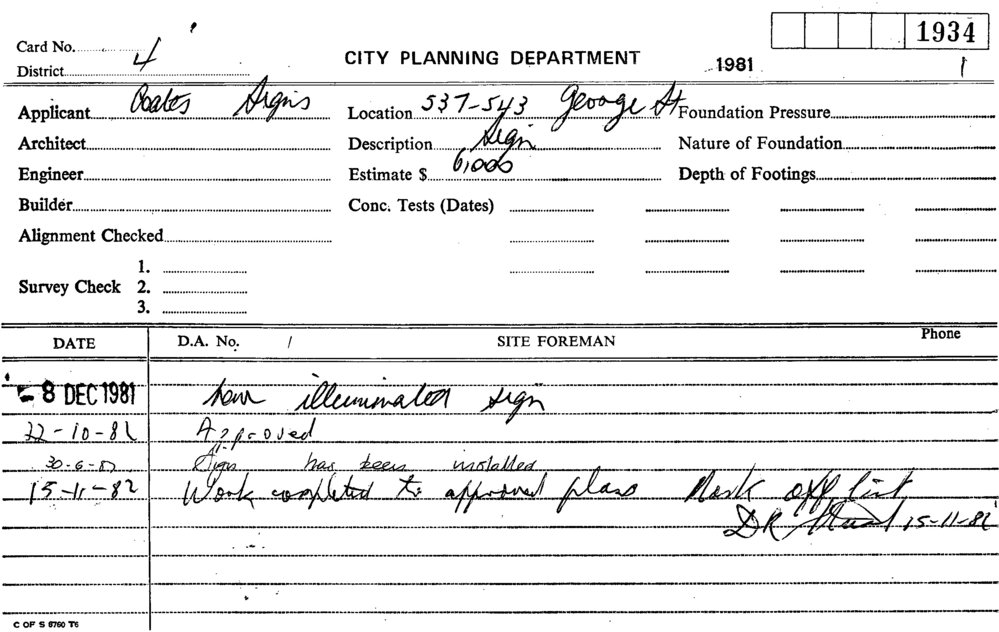 1934
Card No. 4
CITY PLANNING DEPARTMENT
1981
1
District
Applicant Coates Signs
Location 537-543 George St
Foundation Pressure
Architect
Description Sign
Nature of Foundation
Engineer
Estimate $ 6,000
Depth of Footings
Builder
Conc. Tests (Dates)
Alignment Checked
Survey Check 1.
2.
3.
DATE
D.A. No. /
SITE FOREMAN
Phone
- 8 DEC 1981
new illuminated sign
22-10-82 Approved
30-6-82 Sign has been installed
15-11-82 Work completed to approved plans Mark off list
DR 15-11-82
C OF S 6760 T6